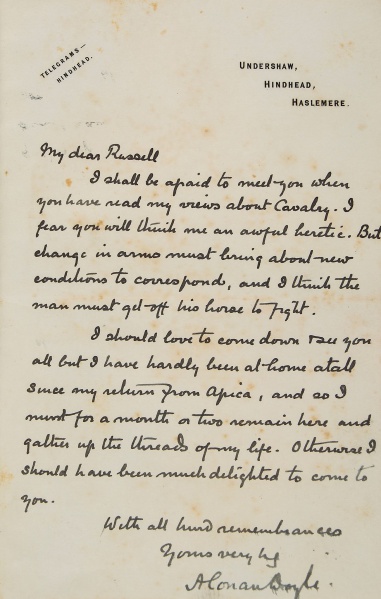 TELEGRAMS—
HINDHEAD.
UNDERSHAW,
HINDHEAD,
HASLEMERE.
My dear Russell
I shall be afraid to meet you when
you have read my views about Cavalry. I
fear you will think me an awful heretic. But
change in arms must bring about new
conditions to correspond, and I think the
man must get off his horse to fight.
I should love to come down & see you
all but I have hardly been at home at all
since my return from Africa, and so I
must for a month or two remain here and
gather up the threads of my life. Otherwise I
should have been much delighted to come to
you.
With all kind remembrances
Yours very
A Conan Doyle.